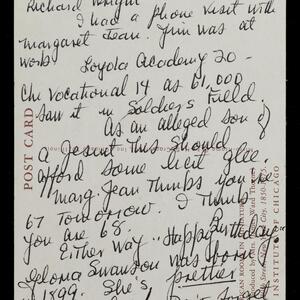 Richard Wright
I had a phone visit with
Margaret Jean. Jim was at
work
Loyola Academy 20 -
Chi Vocational 14 as 61,000
saw it in Soldier's Field.
As an alleged son of
a Jesuit this should
afford some licit glee.
Marg. Jean thinks you're
67 tomorrow. I think
you are 68.
Either way - Happy Birthday
Gloria Swanson was born
1899. She's prettier
POST CARD
INSTITUTE OF CHICAGO